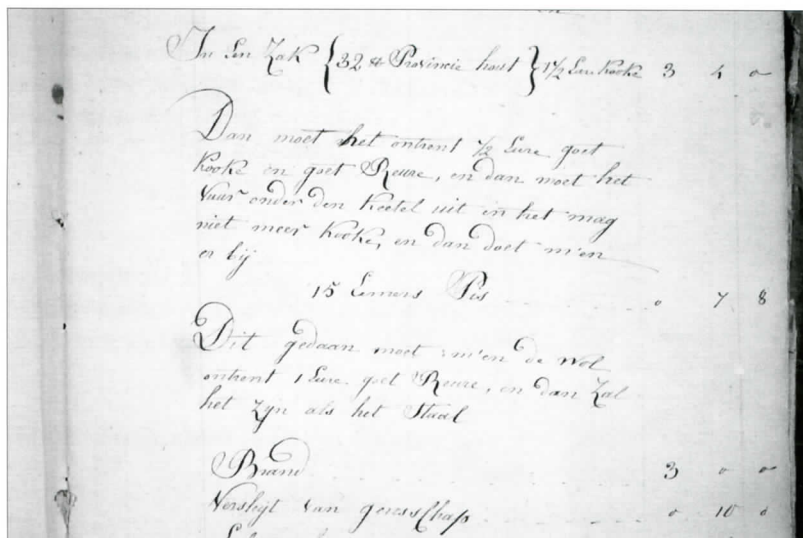 In een Zak { 32 ℔ Provincie hout } 1½ Eure kooke 3 4 o
Dan moet het ontrent ½ Eure goet
kooke en goet Reure, en dan moet het
vuur onder den keetel uit en het mag
niet meer kooke, en dan doet m'en
er bij
15 Eemers Pis o 7 8
Dit gedaan moet m'en de wol
ontrent 1 Eure goet Reure, en dan Zal
het Zijn als het Staal
Brand 3 o o
Verslijt van geresschap o 10 o